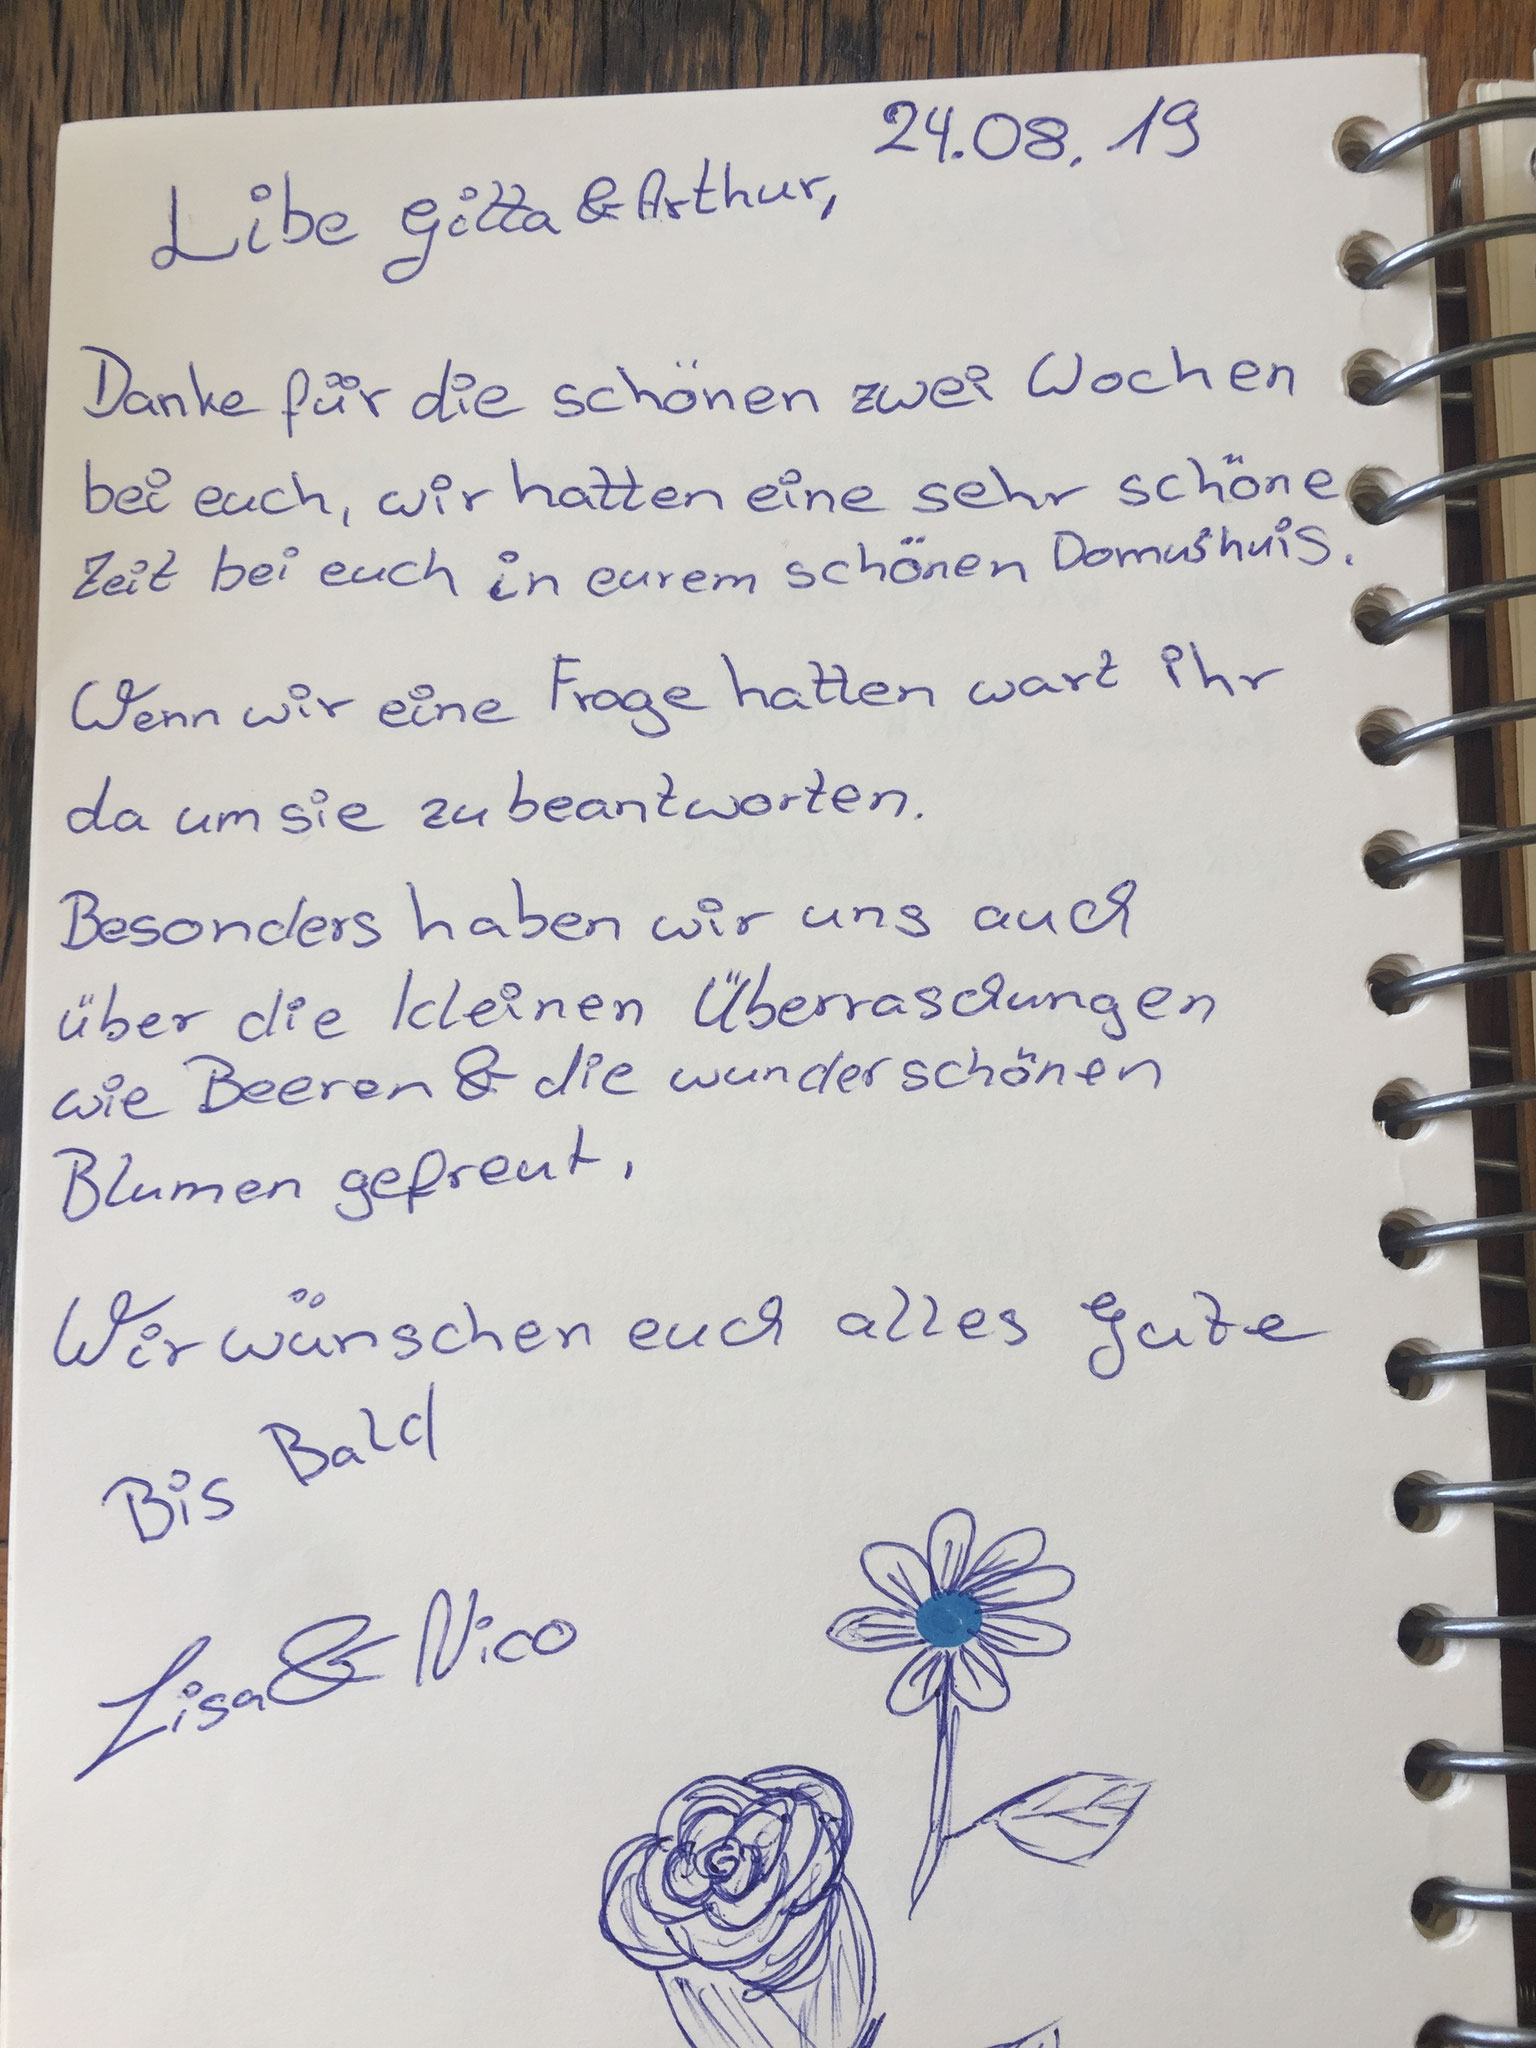 24.08.19
Libe Gitta & Arthur,
Danke für die schönen zwei Wochen
bei euch, wir hatten eine sehr schöne
Zeit bei euch in eurem schönen Domushuis.
Wenn wir eine Frage hatten wart ihr
da um sie zu beantworten.
Besonders haben wir uns auch
über die kleinen Überraschungen
wie Beeren & die wunderschönen
Blumen gefreut.
Wir wünschen euch alles Gute
Bis Bald
Lisa & Nico